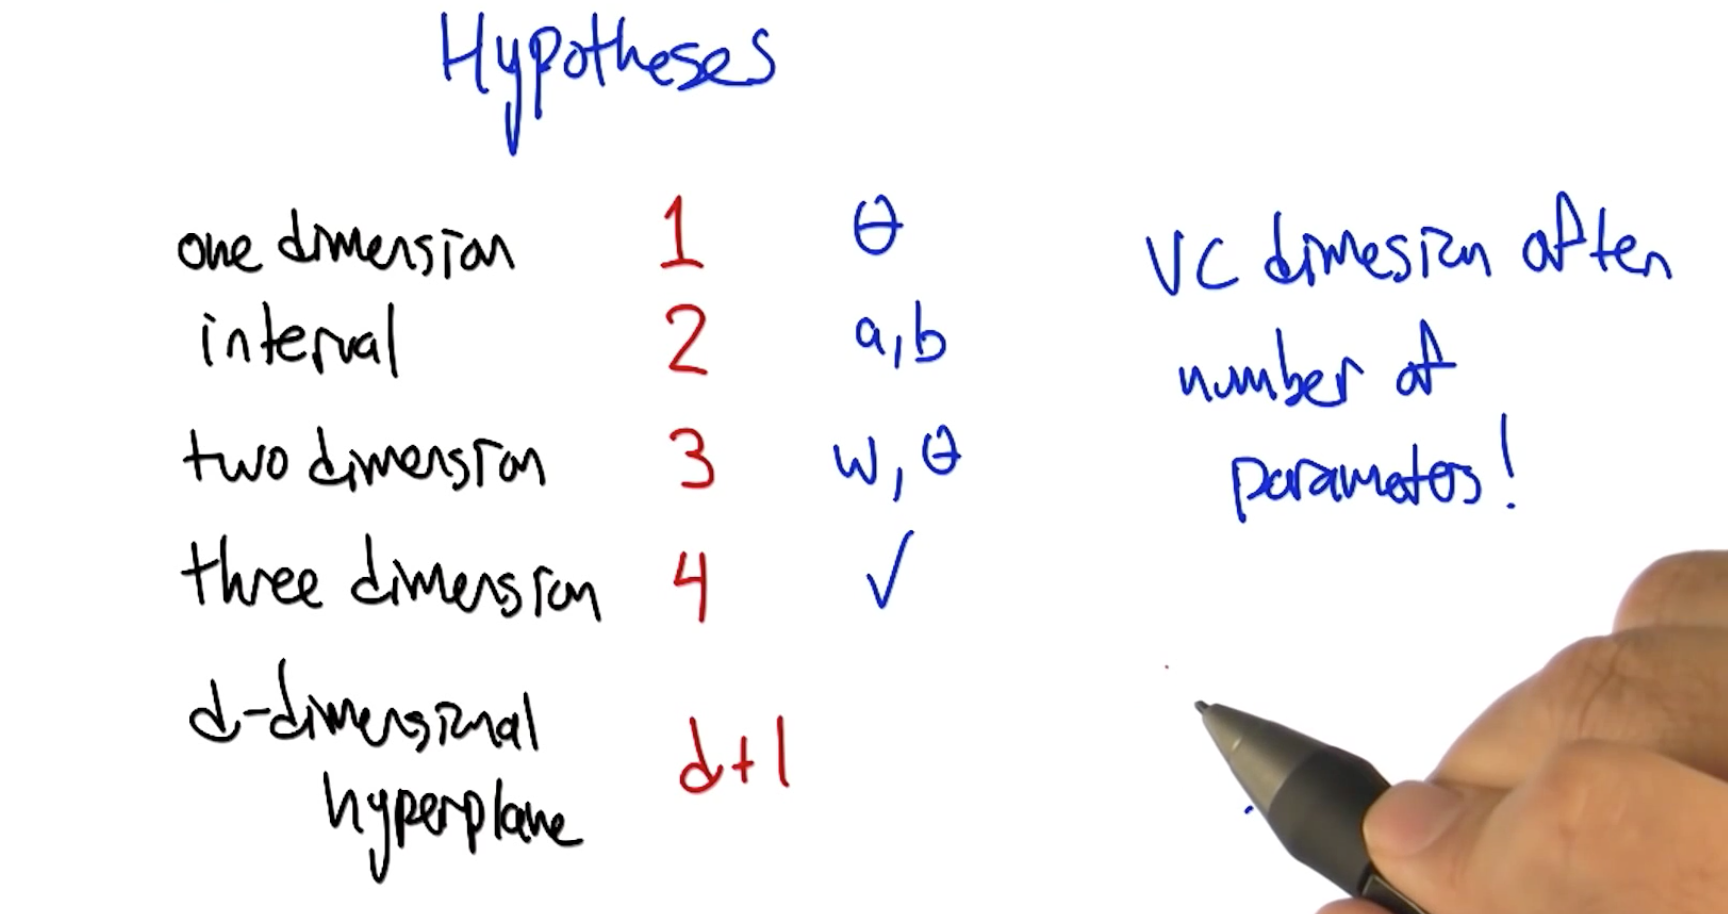 Hypotheses
one dimension 1 θ
interval 2 a, b
two dimension 3 w, θ
three dimension 4 ✓
d-dimensional
hyperplane d+1
VC dimesion often
number of
parameters!